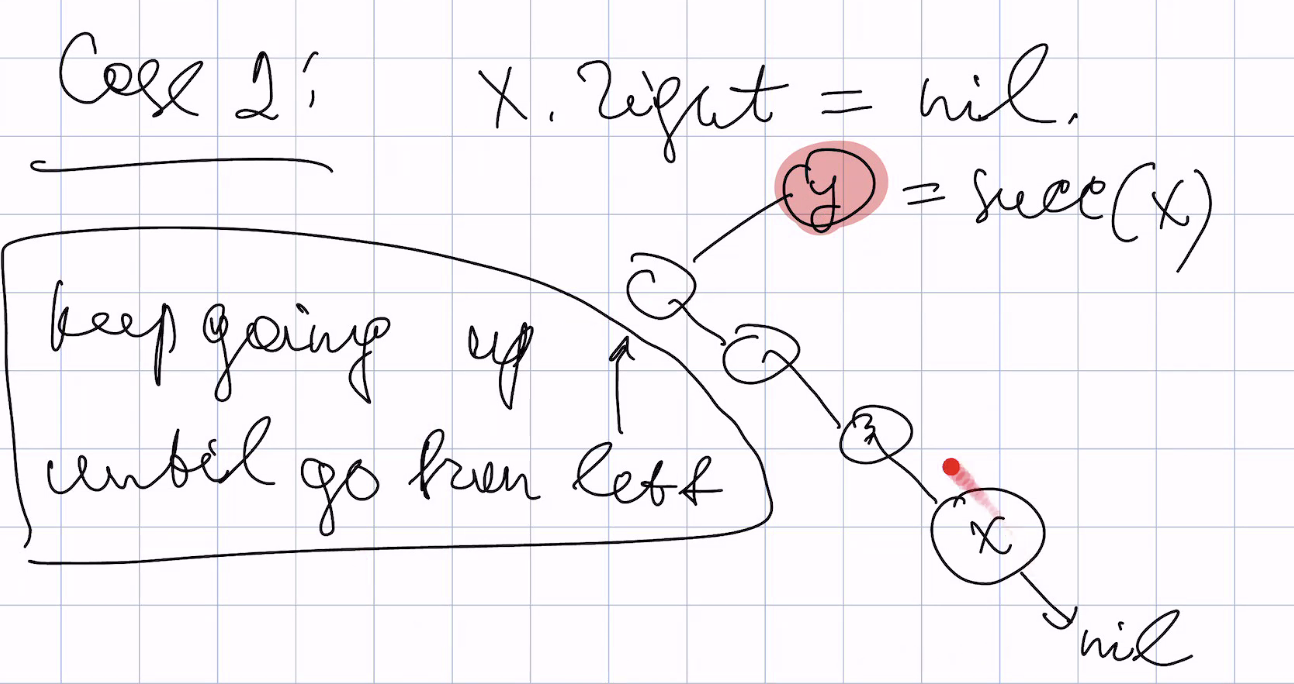 Case 2:
X. right = nil.
y = succ(x)
keep going up
until go from left
z
x
nil